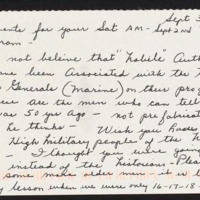 Sept 3
ents for your Sat AM - Sept 2nd
ram -
not believe that "Kobile" Auth
ve been Associated with the
Generals (Marine) on their prog
ere are the men who can tell
was 50 yrs ago - not pre fabricat
he thinks - Wish you have
High Military people of the
- I thought you were goin
instead of the historians - Pleas
some more older men it is
y lesson when we were only 16-17-18-